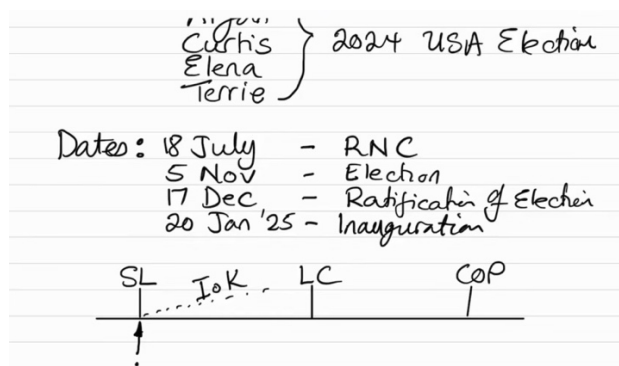 Curtis } 2024 USA Election
Elena
Terrie
Dates: 18 July - RNC
5 Nov - Election
17 Dec - Ratification of Election
20 Jan '25 - Inauguration
SL IoK LC COP